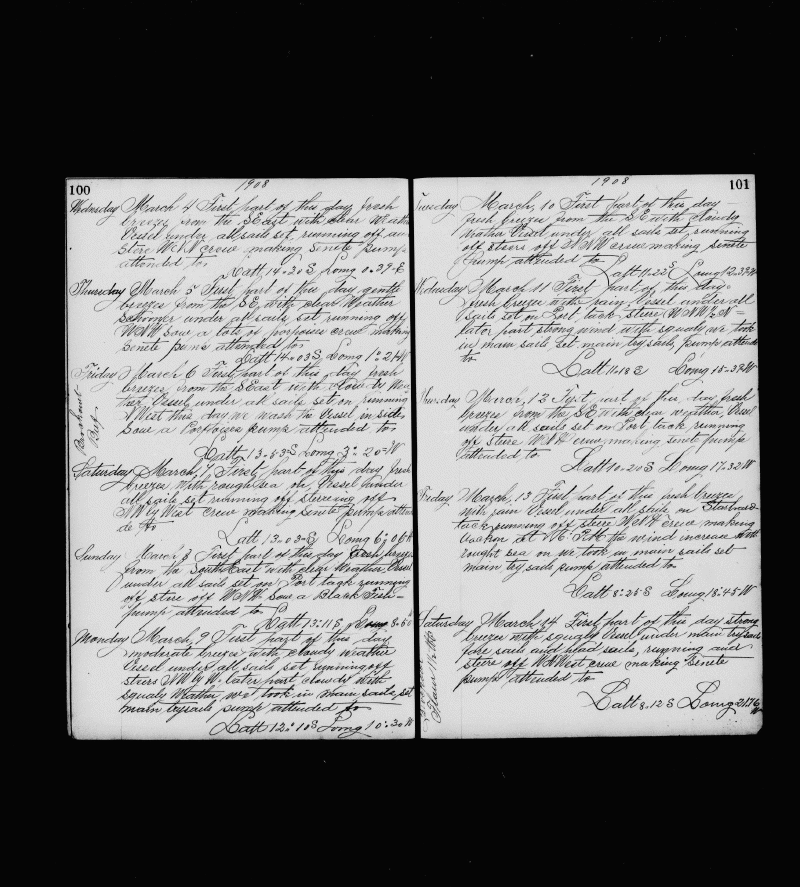 100
1908
Wednesday March 4 First part of this day fresh
breeze from the SEast with clear Weather
Vessel under all sails set, running off and
stere WNW crew making Senete pump
attended to
Latt 14=20 S Long 0=29=E
Thursday March 5 First part of this day gentle
breezes from the SE, with clear Weather
Schooner under all sails set running off
WNW Saw a lots of porpoises crew making
Senete attended to
Latt 14=03S, Long 1=24W
Friday March 6 First part of this day fresh
breezes from the SEast with clowdy Wea
ther Vessel under all sails set on running
West this day we wash the Vessel in side
Saw a pump attended to
Latt, 13=53=S Long 3=20=W
Saturday March, 7, First, part of this day, fresh
breezes with rough sea on, Vessel under
all sails set running off steereing off
NW by West crew making Senete pump atten
de to
Latt 13=03=S Long 6=06W
Sunday March 8 First part of this day fresh breeze
from the South East with clear Weather, Vessel
under all sails set on Port tack running
off stere off WNW saw a Black Fish
pump attended to
Latt 13=11 S, Long 8=50
Monday March, 9 First part of this day
moderate breeze with clowdy weather
Vessel under all sails set running off
steers NW by W. later part clowdy with
squaly Weather, we took in main sails, set
main trysails pump attended to
Latt 12=10S Long 10=30W
Beef
101
1908
Tuesday March, 10 First part of this day
fresh breezes from the SE with clowdy
Weather Vessel under all sails set, running
off steers off WNW crew making senete
Pump attended to
Latt 11.22S Long 12.39W
Wednesday March 11 First part of this day
fresh breeze with rain, Vessel under all
sails set on Port tack, steers WNW ½ N=
later part strong wind with squaly we took
in main sails set main try sails, pump attende
to
Latt 11.18 S Long 15.39W
Thursday March, 12 First part of this day fresh
breezes from the SE with clear weather, Vessel
under all sails set on Port, tack running
off steere WNW crew making senete pump
attended to
Latt 10.20S Long 17.32W
Friday March, 13 First part of this fresh breezes
with rain Vessel under all sails on Starboard
tack running off steere crew making
At PM the wind increase with
rought sea on we took in main sails set
main try sails pump attended to
Latt 8.25S Long 18.45W
Saturday March 14 First part of this day strong
breezes with squaly Vessel under main try sail
fore sails and head sails, running and
steere off WNWest crew making Senete
pump attended to
Latt 8.12 S Long 21.16
W